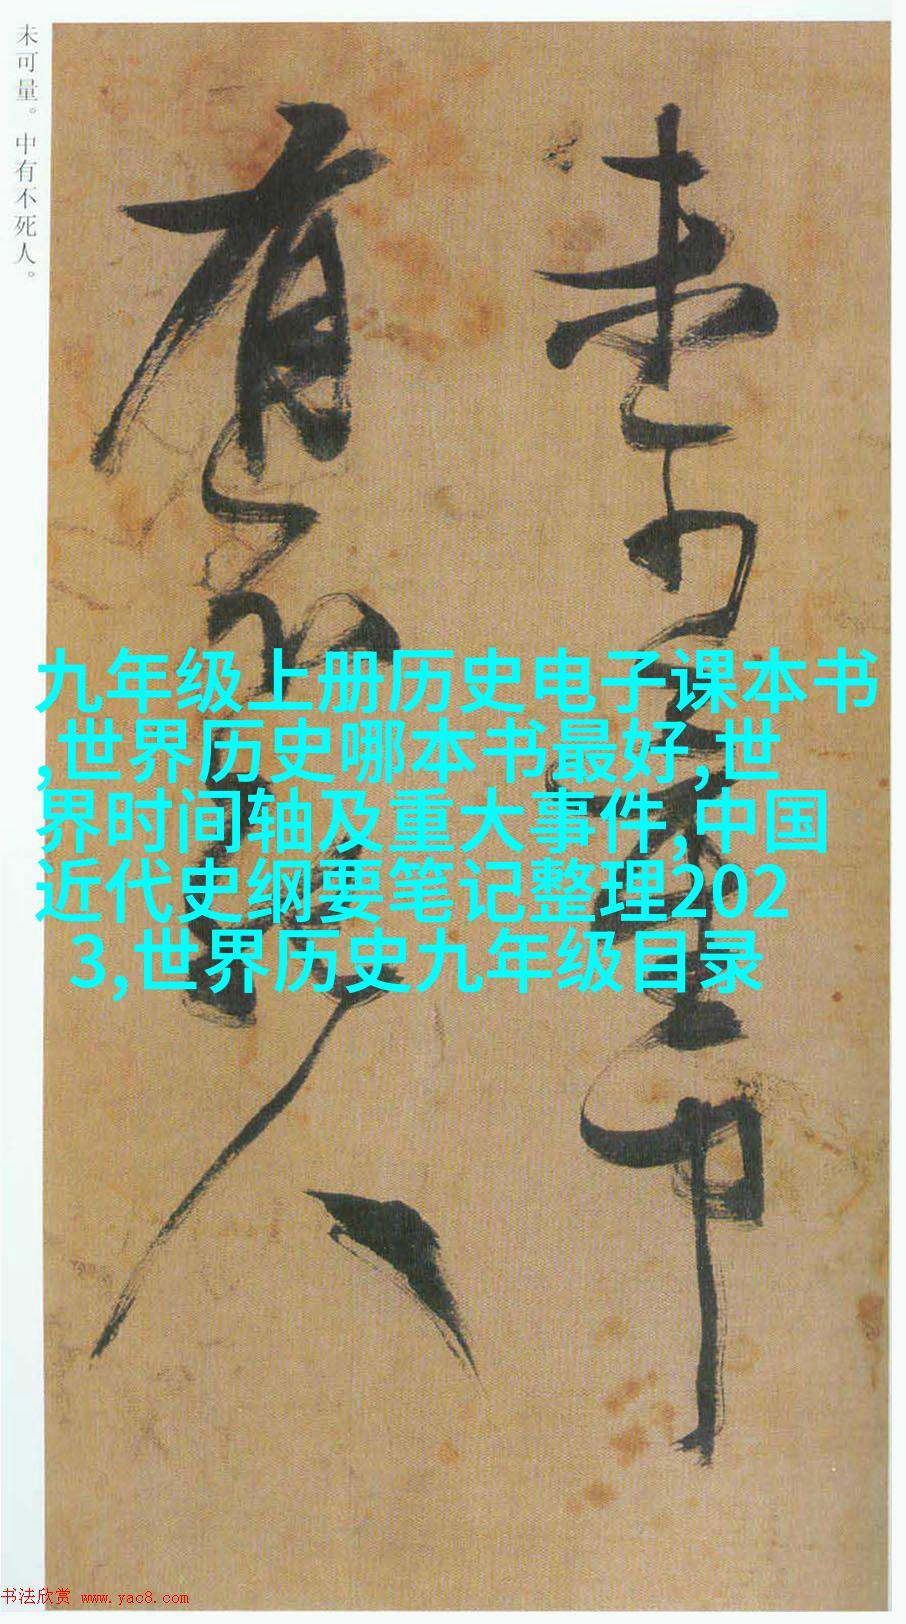 未可量。中有不死人。
未可量中
有不死人
九年级上册历史电子课本书
,世界历史哪本书最好,世
界时间轴及重大事件,中国
近代史纲要笔记整理202
3,世界历史九年级目录
书法欣赏 www.yac8.com